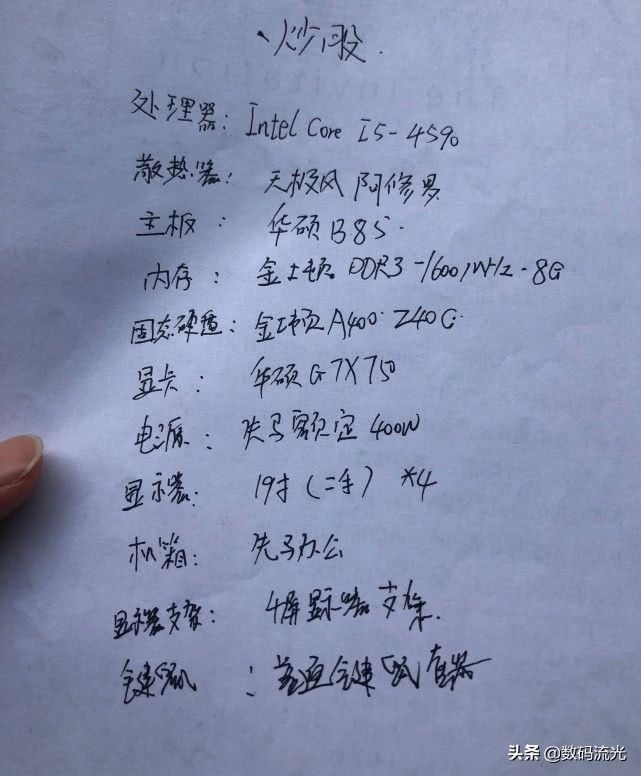 炒股.
处理器: Intel Core I5-4590
散热器: 无极风 阿修罗
主板: 华硕B85.
内存: 金士顿 DDR3-1600MHz.8G
固态硬盘: 金士顿A400.240G.
显卡: 华硕G7X750
电源: 先马额定400W
显示器: 19寸(二手) *4
机箱: 先马办公
显示器支架: 4屏显示器支架.
键鼠: 普通键鼠套器
头条 @数码流光